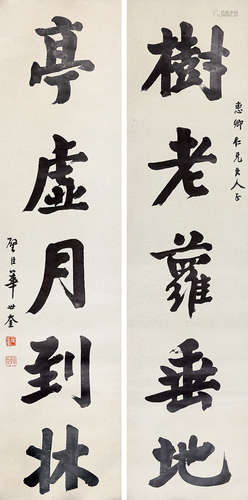 樹老蘿垂地
惠卿仁兄大人正
亭虛月到牀
璧臣華世奎